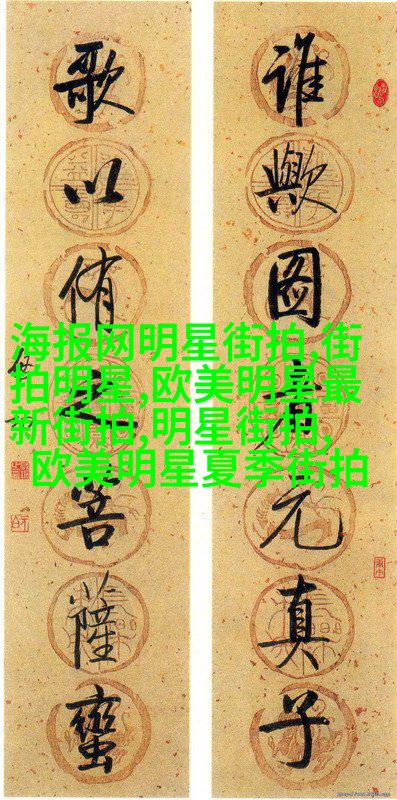 谁歟图元真子
歌以侑菩薩蠻
海报网明星街拍,街
拍明星,欧美明星最
新街拍,明星街拍,
欧美明星夏季街拍